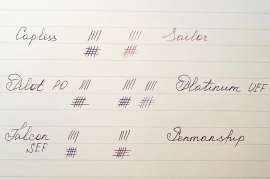 Capless Sailor
Pilot PO Platinum UEF
Falcon Penmanship
SEF